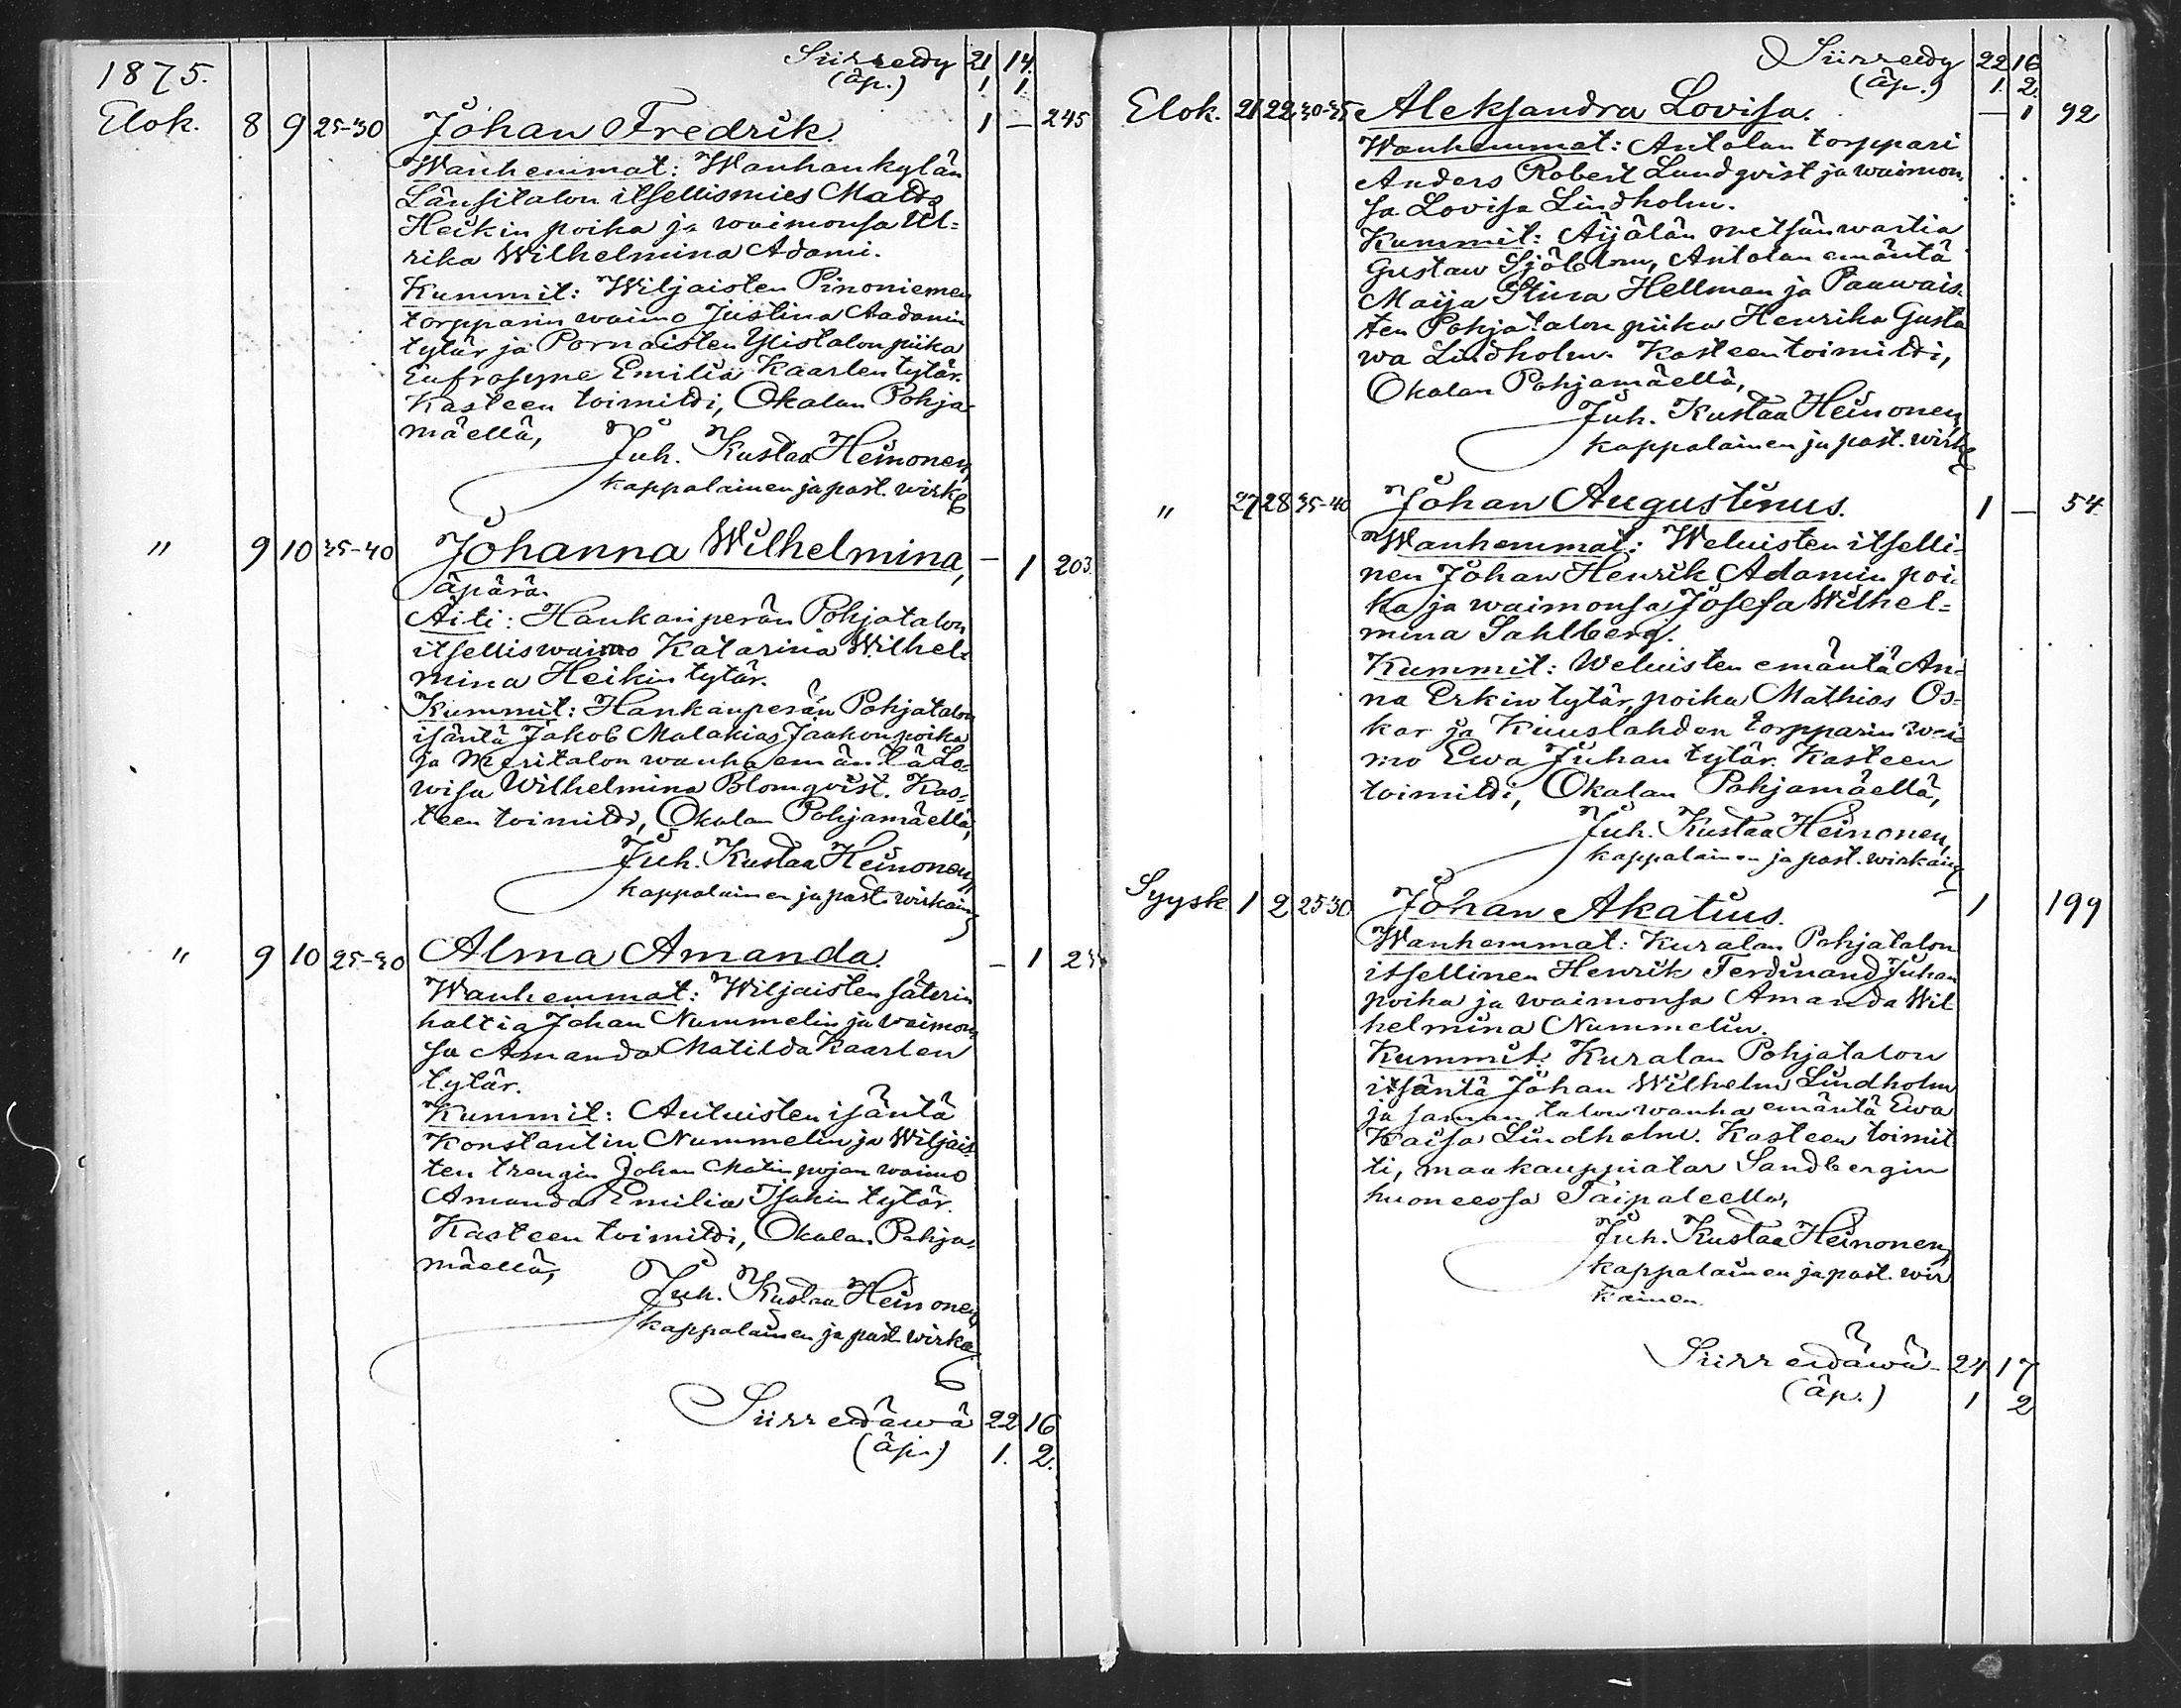 1875.
Siirretty 21 14.
(äp.) 1 1.
Elok. 8 9 25-30 Johan Fredrik. 1 — 245
Wanhemmat: Wanhankylän
Länsitalon itsellismies Matts
Heikin poika ja waimonsa Ul=
rika Wilhelmina Adami.
Kummit: Wiljaisten Pinoniemen
torpparin waimo Justina Aadamin
tytär ja Pornaisten Ylistalon piika
Eufrosyne Emilia Kaarlen tytär.
Kasteen toimitti, Okalan Pohja=
mäellä,
Juh. Kustaa Heinonen,
kappalainen ja past. wirk.
" 9 10 35-40 Johanna Wilhelmina, — 1 203.
äpärä.
Äiti: Haukanperän Pohjatalon
itselliswaimo Katarina Wilhel=
mina Heikin tytär.
Kummit: Haukanperän Pohjatalon
isäntä Jakob Malakias Jaakon poika
ja Meritalon wanha emäntä Lo=
wisa Wilhelmina Blomqvist. Kas=
teen toimitti, Okalan Pohjamäellä,
Juh. Kustaa Heinonen,
kappalainen ja past. wirkain
" 9 10 25-30 Alma Amanda. — 1
Wanhemmat: Wiljaisten säterin
haltia Johan Nummelin ja waimon
sa Amanda Matilda Kaarlen
tytär.
Kummit: Autuisten isäntä
Konstantin Nummelin ja Wiljais
ten trengin Johan Matin pojan waimo
Amanda Emilia Isakin tytär.
Kasteen toimitti, Okalan Pohja=
mäellä,
Juh. Kustaa Heinonen,
kappalainen ja past. wirka.
Siirrettäwä 22 16
(äp.) 1. 2.
Siirretty 22 16
(äp.) 1. 2.
Elok. 21 22 30-35 Aleksandra Lovisa. — 1 92
Wanhemmat: Antolan torppari
Anders Robert Lundqvist ja waimon,
sa Lovisa Lindholm.
Kummit: Äijälän metsänwartia
Gustaw Sjöblom, Antolan emäntä
Maija Stina Hellman ja Paawais
ten Pohjatalon piika Henrika Gusta
wa Lindholm. Kasteen toimitti,
Okalan Pohjamäellä,
Juh. Kustaa Heinonen,
kappalainen ja past. wirk
" 27 28 35-40 Johan Augustinus. 1 — 54
Wanhemmat: Weluisten itselli=
nen Johan Henrik Adamin poi=
ka ja waimonsa Josefa Wilhel=
mina Sahlberg.
Kummit: Weluisten emäntä An=
na Erkin tytär, poika Mathias Os=
kar ja Kuuslahden torpparin wai=
mo Ewa Juhan tytär. Kasteen
toimitti, Okalan Pohjamäellä,
Juh. Kustaa Heinonen,
kappalainen ja past. wirkain
Syysk 1 2 25 30 Johan Akatius. 1 199
Wanhemmat: Kuralan Pohjatalon
itsellinen Henrik Ferdinand Juhan
poika ja waimonsa Amanda Wil
helmina Nummelin.
Kummit: Kuralan Pohjatalon
isäntä Johan Wilhelm Lindholm
ja saman talon wanha emäntä Ewa
Kaisa Lindholm. Kasteen toimit
ti, maakauppiatar Sandbergin
huoneessa Taipaleella,
Juh. Kustaa Heinonen,
kappalainen ja past. wir
kainen.
Siirrettäwä 24 17
(äp.) 1 2